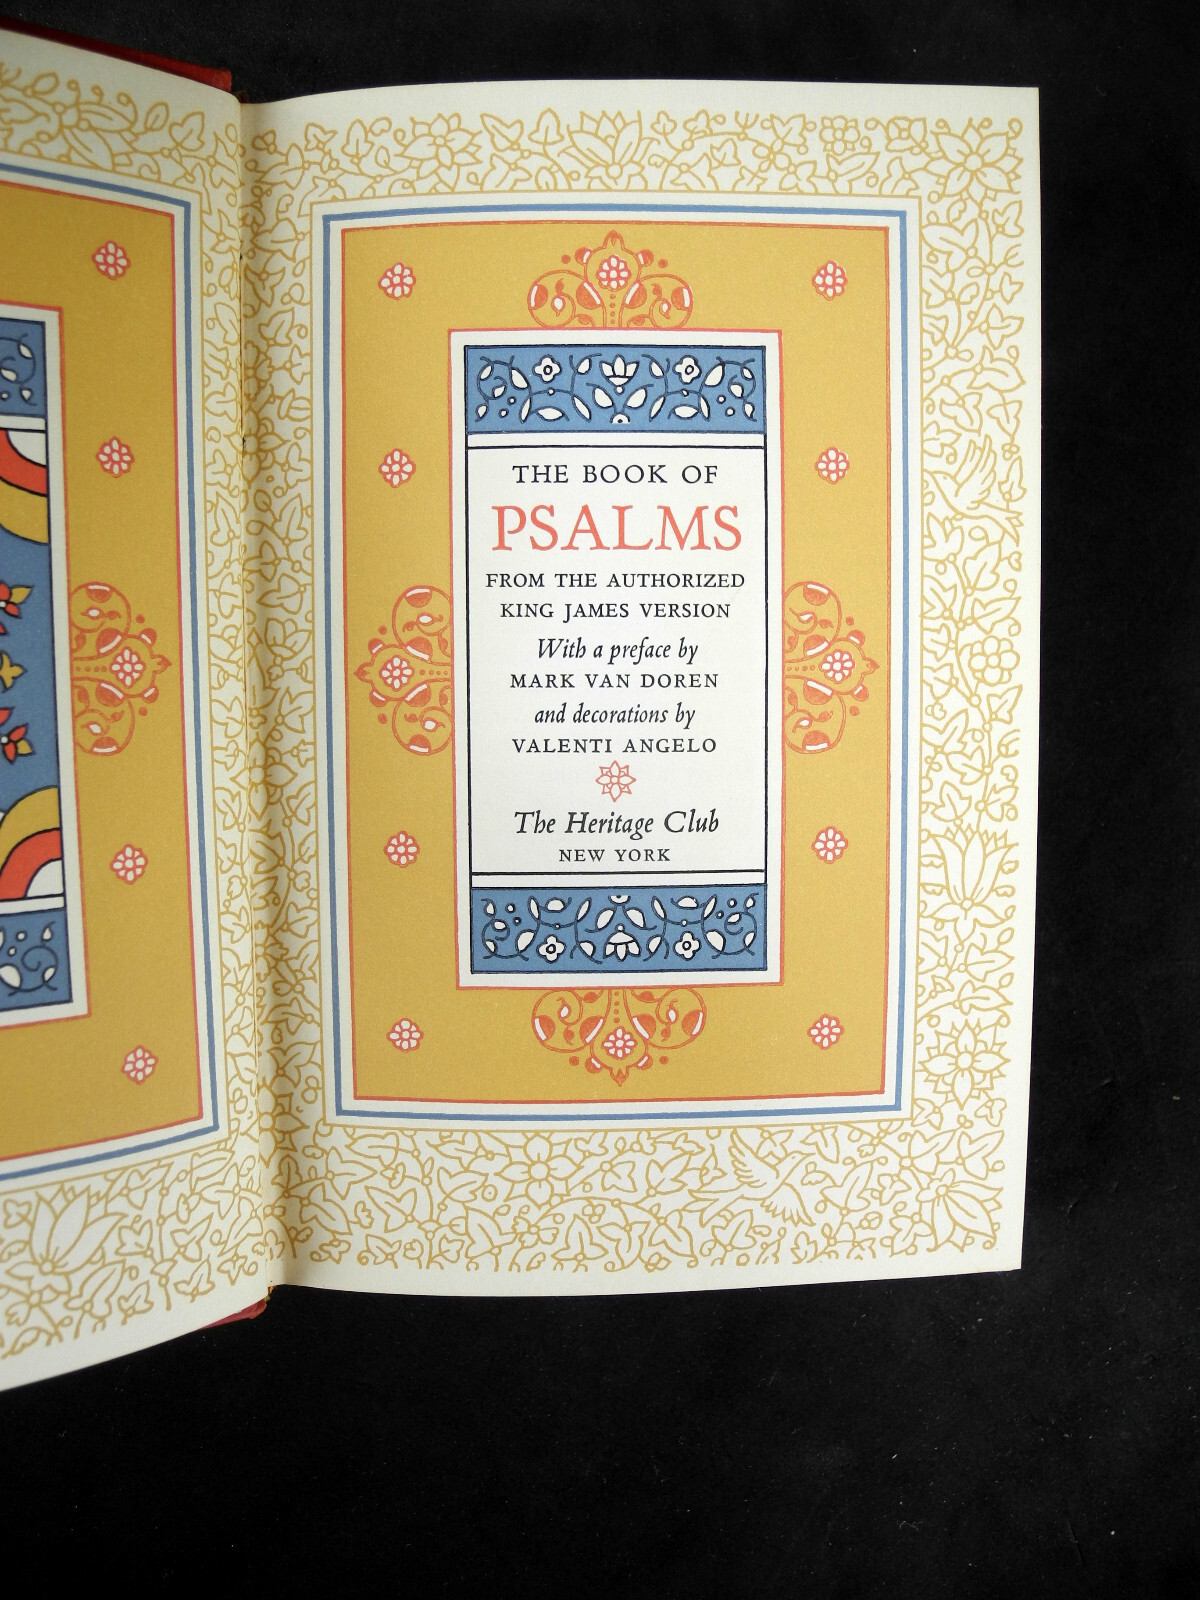 THE BOOK OF
PSALMS
FROM THE AUTHORIZED
KING JAMES VERSION
With a preface by
MARK VAN DOREN
and decorations by
VALENTI ANGELO
The Heritage Club
NEW YORK